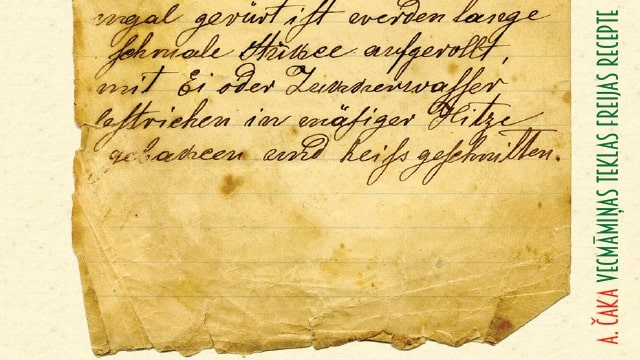 mgal gerürt ist werden lange
schmale Stükee aufgerollt,
mit Ei oder Zukkerwasser
bestrichen in mäsiger Hitze
gebakeen und heiss geschnitten.
A. ČAKA VECMĀMIŅAS TEKLAS FREIJAS RECEPTE